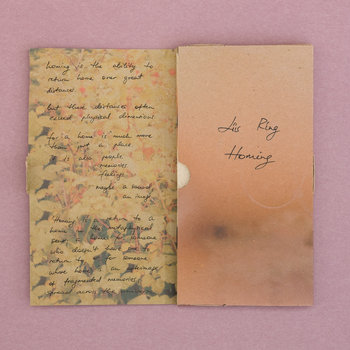 homing is the ability to
return home over great
distances
but these distances often
exceed physical dimensions
for a home is much more
than just a place
it is also people
memories
feelings
maybe a sound
an image
Homing is a return to a
home in the metaphysical
sense, a home for someone
who doesn't have one to
return to for someone
whose home is an afterimage
of fragmented memories
spread across the
Liis Ring
Homing